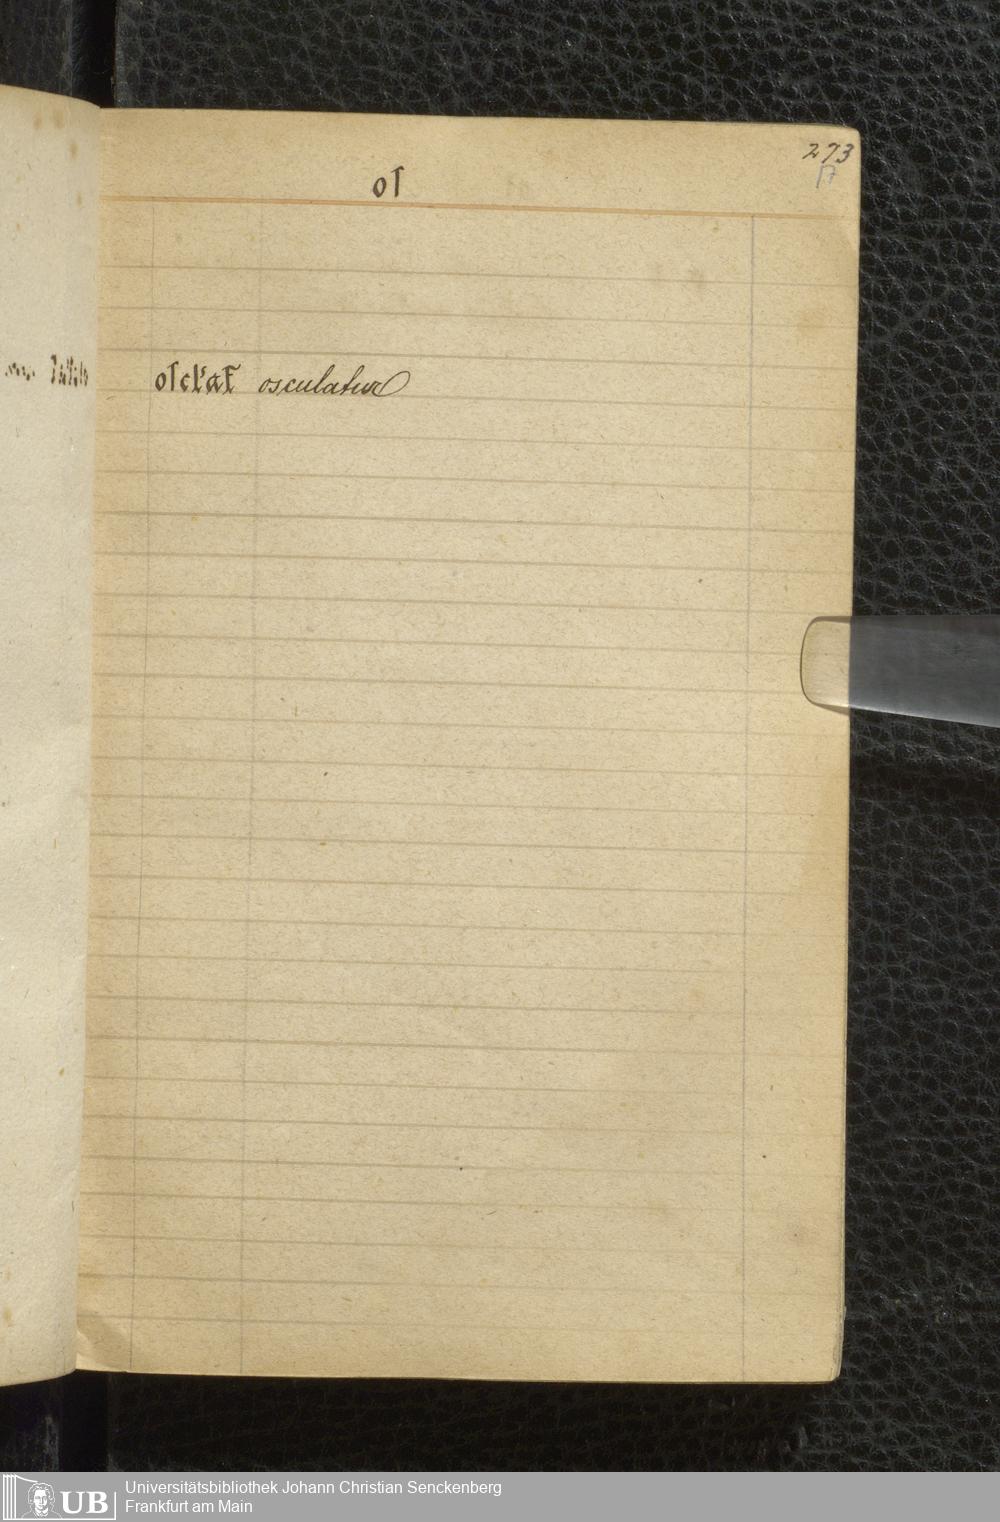 273
oſ
oſcłaꞇ̄ osculatur
UB Universitätsbibliothek Johann Christian Senckenberg
Frankfurt am Main